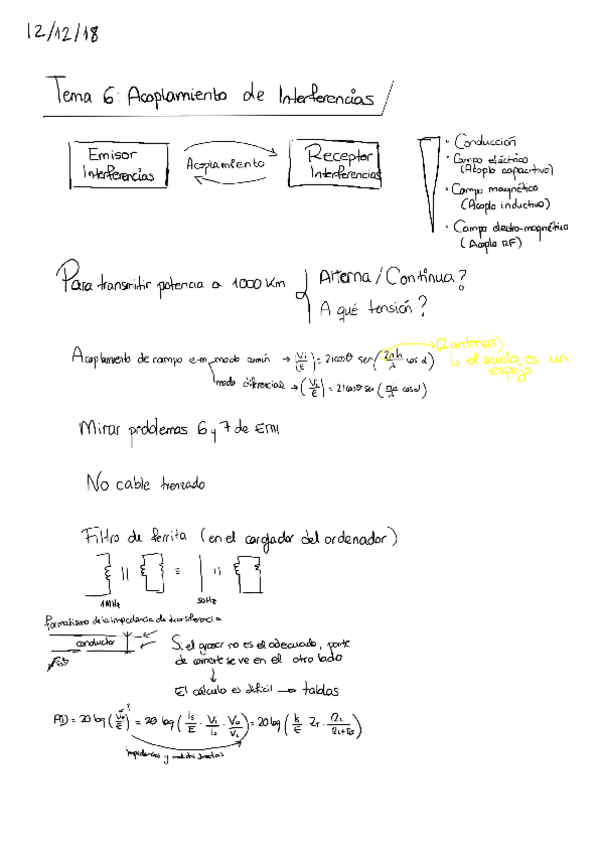 12/12/18
Tema 6: Acoplamiento de Interferencias
Emisor Interferencias
Acoplamiento
Receptor Interferencias
· Conducción
· Campo eléctrico (Acoplo capacitivo)
· Campo magnético (Acoplo inductivo)
· Campo electro-magnético (Acoplo RF)
Para transmitir potencia a 1000 Km
Alterna / Continua?
A qué tensión?
Acoplamiento de campo e-m modo común → (Vi/E) = 2 l cosθ sen(2πh/λ cos α)
(2 antenas)
↳ el suelo es un espejo
modo diferencial → (Vi/E) = 2 l cosθ sen(
Mirar problemas 6 y 7 de EMI
No cable trenzado
Filtro de ferrita (en el cargador del ordenador)
1MHz
50Hz
Formalismo de la impedancia de transferencia
conductor
Si el grosor no es el adecuado, parte
de corriente se ve en el otro lado
El cálculo es difícil → tablas
= 20 log (Vo/E) = 20 log (Is/E · Vi/Is · Vo/Vi) = 20 log (Is/E · ZT ·
impedancias y medidas